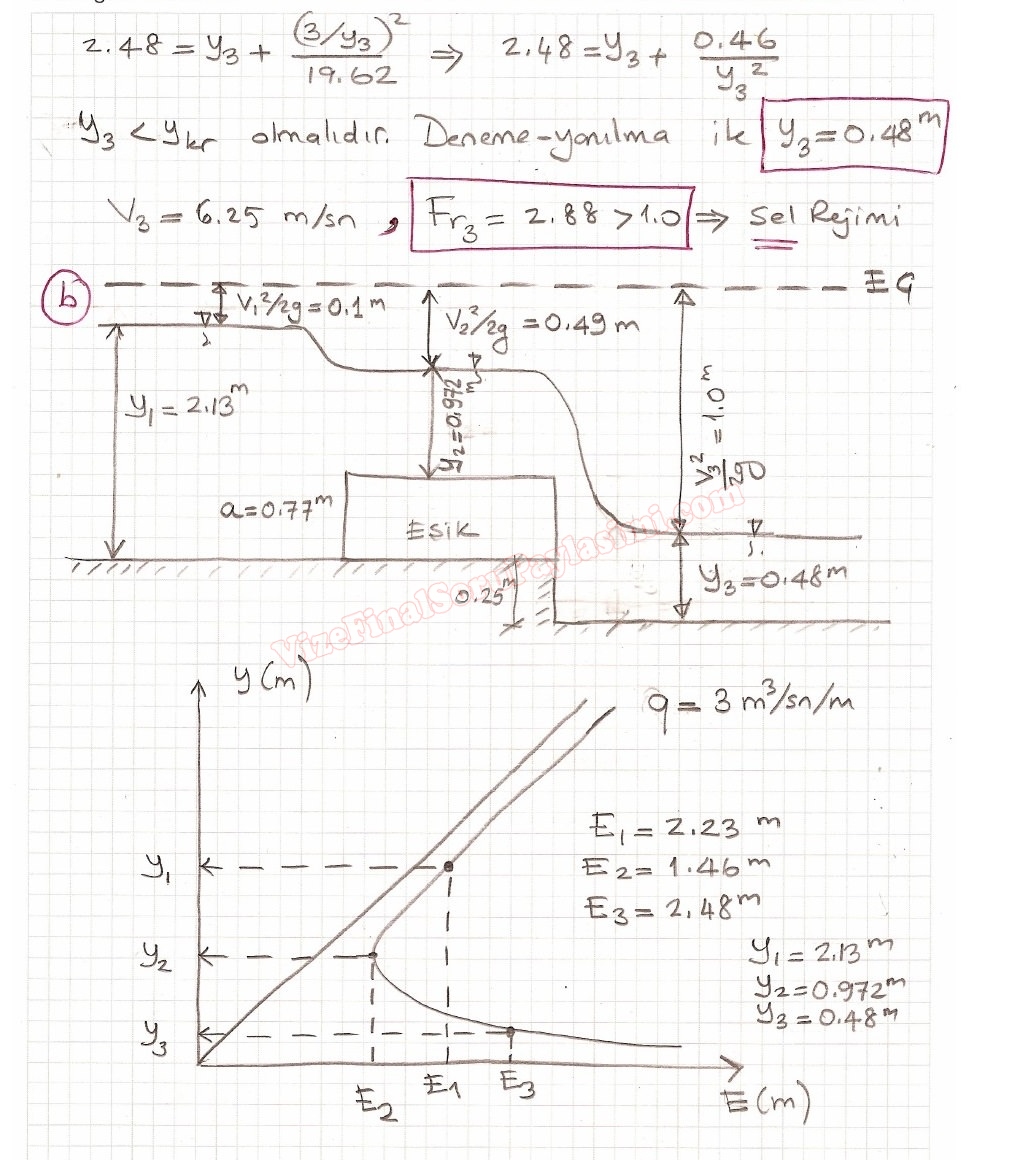 2.48 = y₃ + (3/y₃)² / 19.62 ⇒ 2.48 = y₃ + 0.46 / y₃²
y₃ < ykr olmalıdır. Deneme-yanılma ile y₃ = 0.48 m
V₃ = 6.25 m/sn , Fr₃ = 2.88 > 1.0 ⇒ Sel Rejimi
b
EÇ
V₁²/2g = 0.1 m
V₂²/2g = 0.49 m
y₁ = 2.13 m
y₂ = 0.972 m
V₃²/2g = 1.0 m
a = 0.77 m
ESİK
0.25 m
y₃ = 0.48 m
VizeFinalSoruPaylasimi.com
y (m)
q = 3 m³/sn/m
E₁ = 2.23 m
E₂ = 1.46 m
E₃ = 2.48 m
y₁ = 2.13 m
y₂ = 0.972 m
y₃ = 0.48 m
y₁
y₂
y₃
E₂
E₁
E₃
E (m)